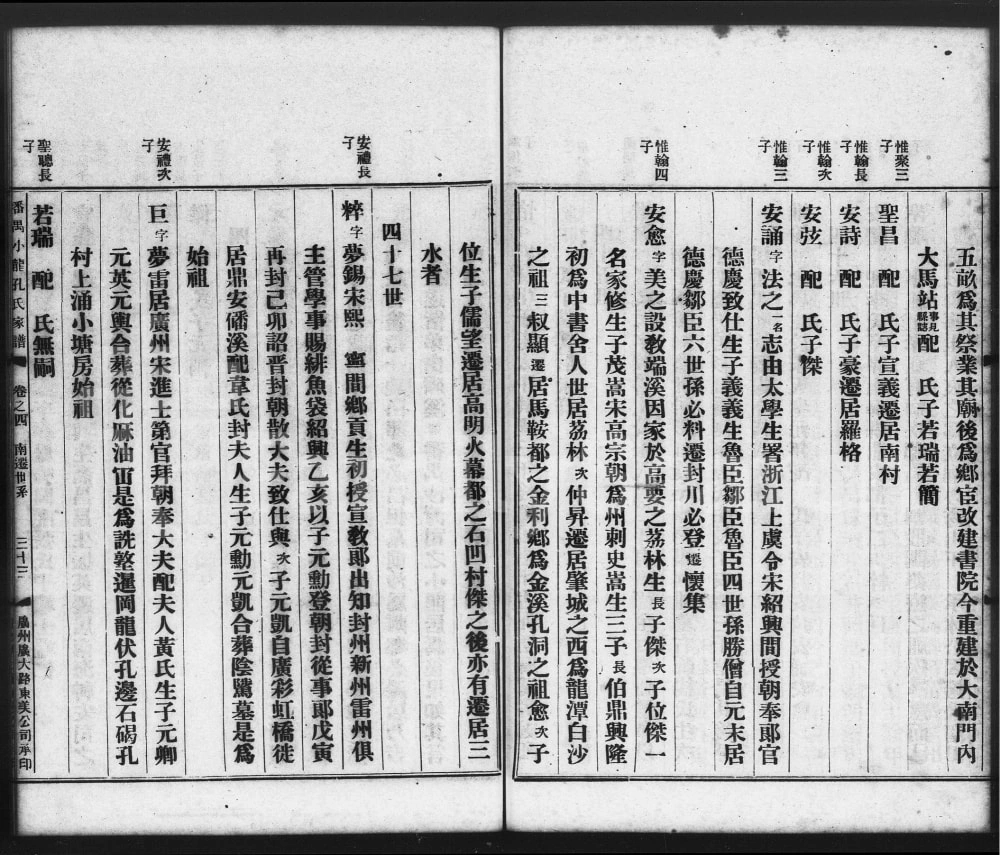 五畝爲其祭業其廟後爲鄉宦改建書院今重建於大南門內
大馬站事見縣誌配　氏子若瑞若簡
惟聚三子
聖昌　配　氏子宣義遷居南村
惟翰長子
安詩　配　氏子豪遷居羅格
惟翰次子
安弦　配　氏子傑
惟翰三子
安誦字法之一名志由太學生署浙江上虞令宋紹興間授朝奉郞官
德慶致仕生子義義生魯臣鄒臣魯臣四世孫勝僧自元末居
德慶鄒臣六世孫必料遷封川必登遷懷集
惟翰四子
安愈字美之設敎端溪因家於高要之茘林生長子傑次子位傑一
名家修生子茂嵩宋高宗朝爲州刺史嵩生三子長伯鼎興隆
初爲中書舍人世居茘林次仲昇遷居肇城之西爲龍潭白沙
之祖三叔顯遷居馬鞍都之金利鄉爲金溪孔洞之祖愈次子
位生子儒望遷居高明火幕都之石凹村傑之後亦有遷居三
水者
四十七世
安禮長子
粹字夢錫宋熙寧間鄉貢生初授宣敎郞出知封州新州雷州俱
主管學事賜緋魚袋紹興乙亥以子元勳登朝封從事郞戊寅
再封己卯詔晉封朝散大夫致仕與次子元凱自廣彩虹橋徙
居鼎安磻溪配韋氏封夫人生子元勳元凱合葬陰騭墓是爲
始祖
安禮次子
巨字夢雷居廣州宋進士第官拜朝奉大夫配夫人黃氏生子元卿
元英元興合葬從化麻油是爲詵塾暹岡龍伏孔邊石碣孔
村上涌小塘房始祖
聖聰長子
若瑞　配　氏無嗣
番禺小龍孔氏家譜　卷之四　南遷世系　廣州廣大路東美公司承印